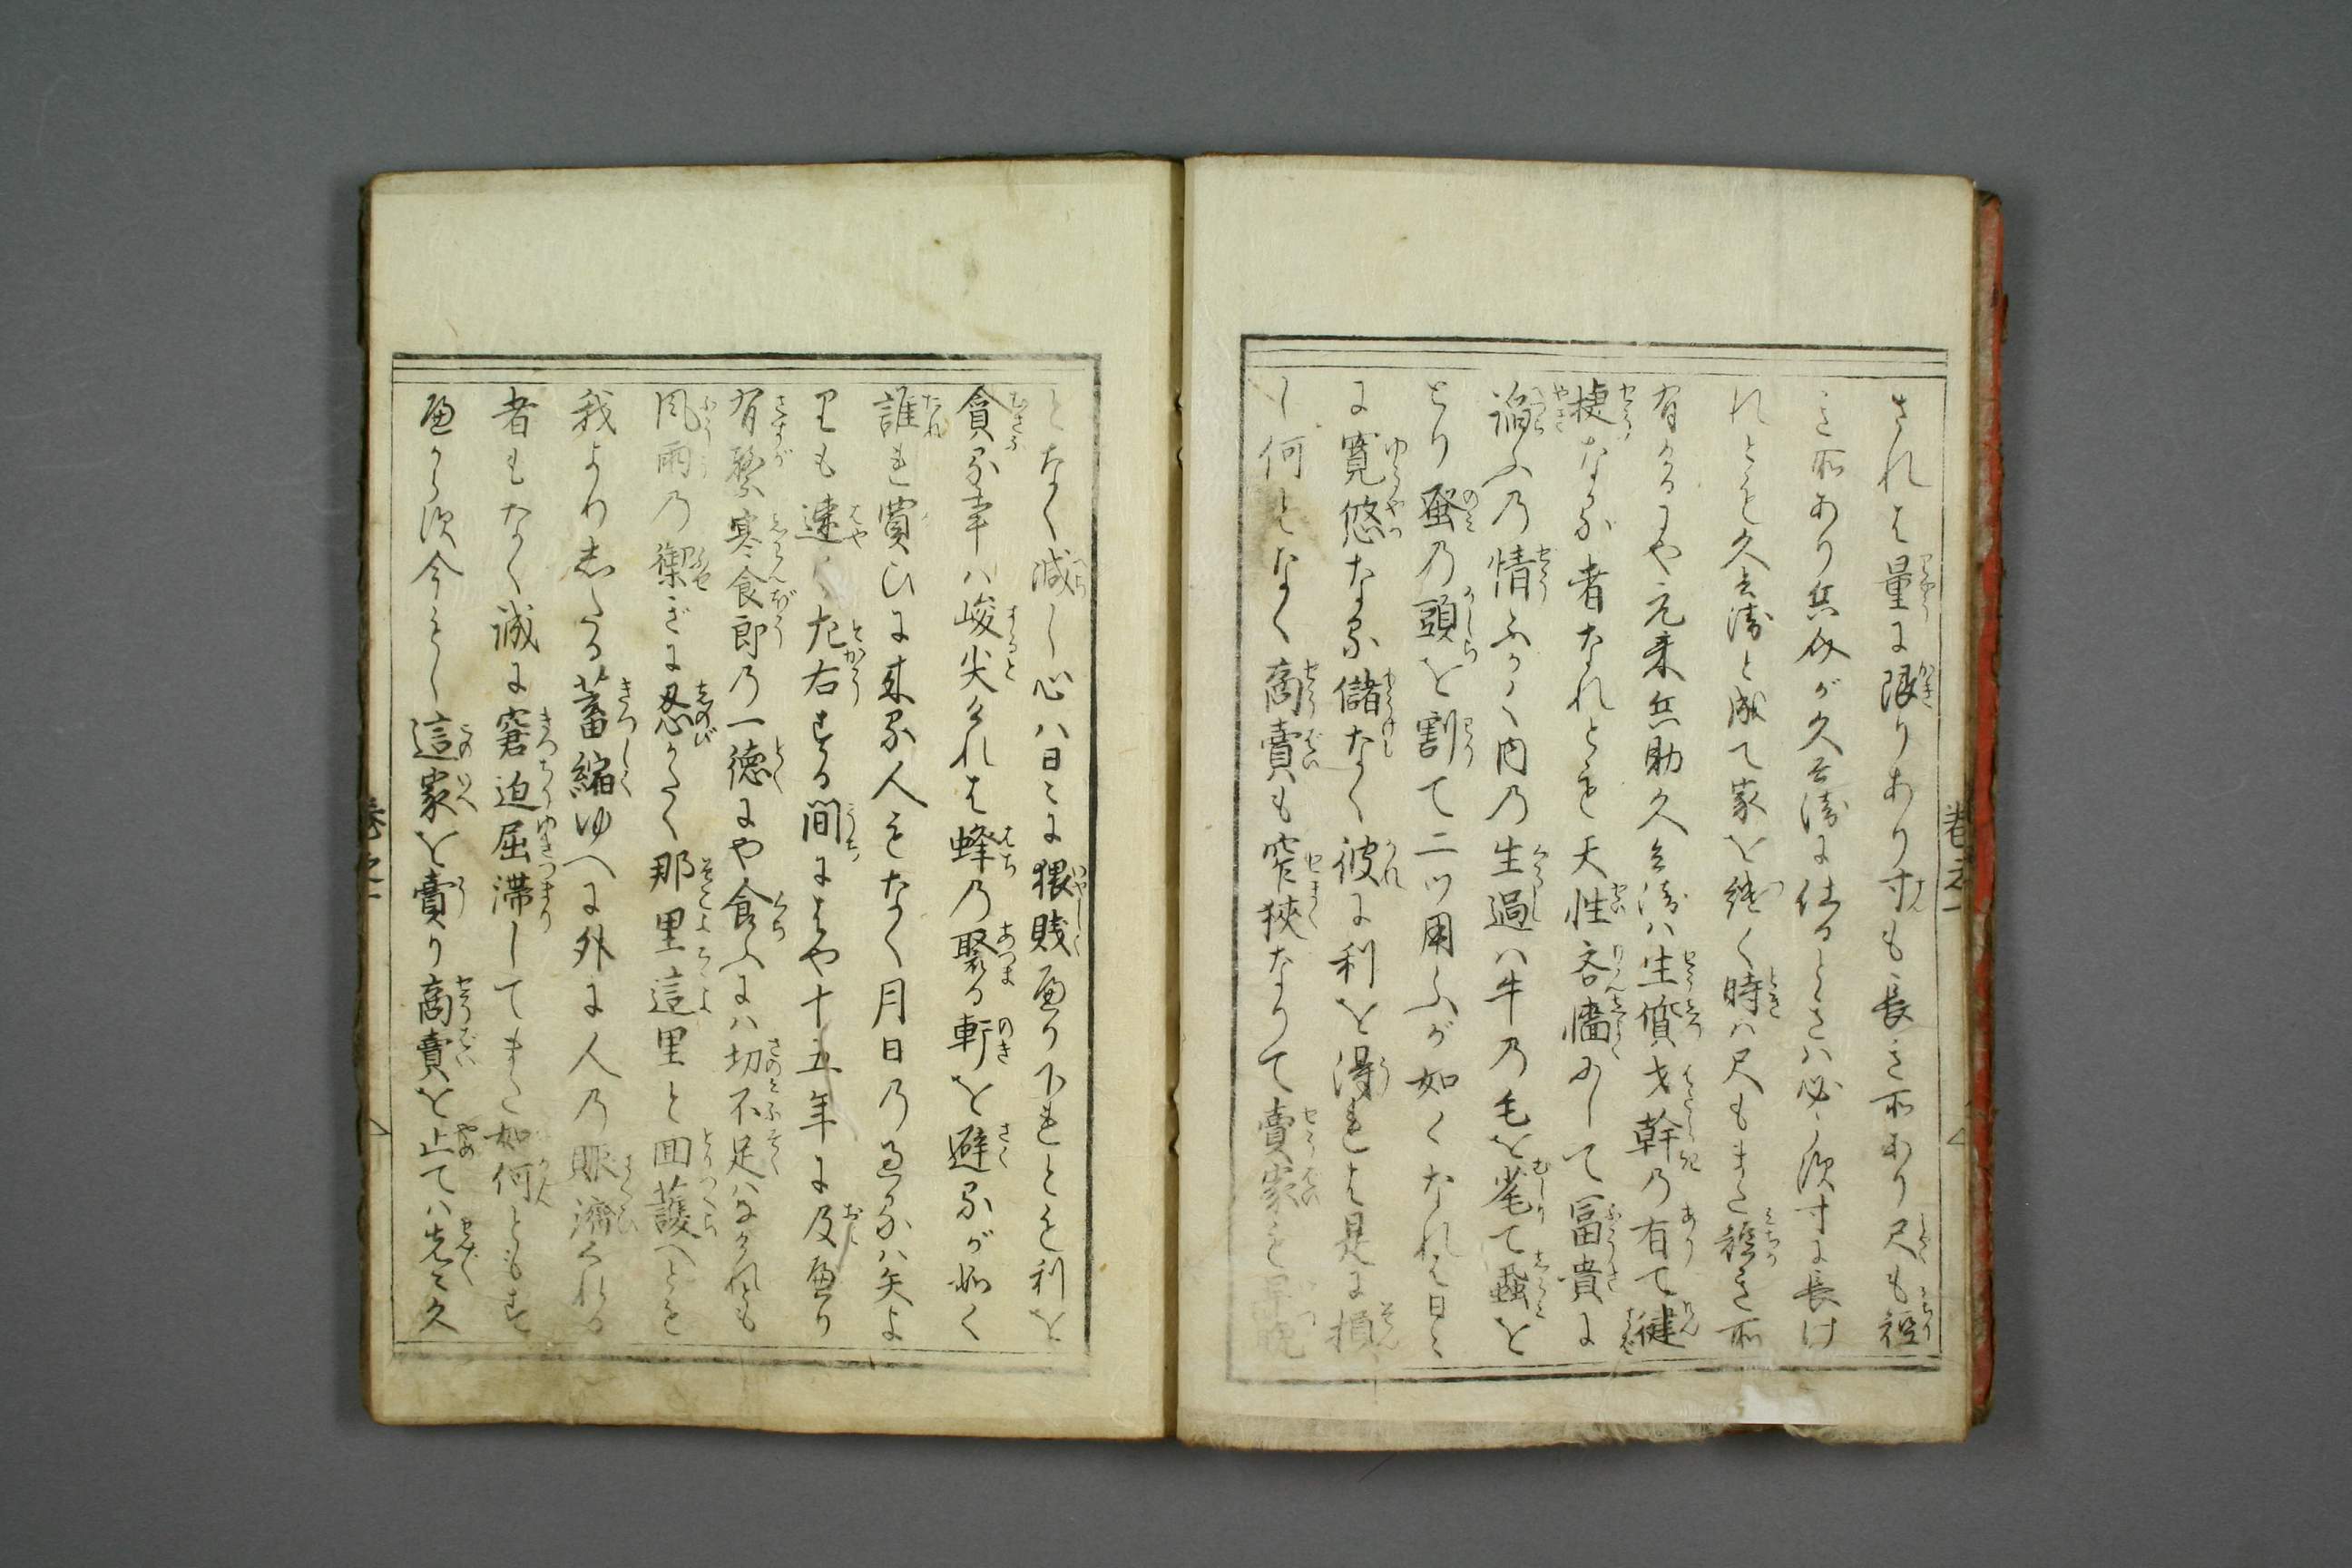 されは量に限りあり寸も長き所あり尺も短
き所あり兵介が久兵衛に仕るときハ必ず寸に長け
れとも久兵衛と成て家を継く時ハ尺もまた短き所
有けるにや元来兵助久兵衛ハ生質才幹の有て健
捷なる者なれとも天性吝嗇にして冨貴に
諂ふの情ふかく内の生過ハ牛の毛を毟て蝨を
とり蚤の頭を割て二ツ用ふが如くなれは日々
に寛悠なる儲なく彼に利を得れは是に損
し何となく商賣も窄狹なりて賣家を
となく減し心ハ日々に猥賤なり下れとも利を
貪る幸ハ峻尖けれは蜂の聚る軒を避るが如く
誰れ賞ひに来る人もなく月日の過るハ矢よ
りも速く左右する間にはや十五年に及なり
有繋寒食郎の一徳にや食ふにハ切不足ハなけれとも
風雨の禦ぎに忍かたく那里這里と回護へとも
我よりおしたる蓄縮ゆへに外に人の賑済くれる
者もなく誠に窘迫屈滞してまた如何ともす
へからす今もし這家を賣り商賣を止てハ先々久
巻之一
巻之一